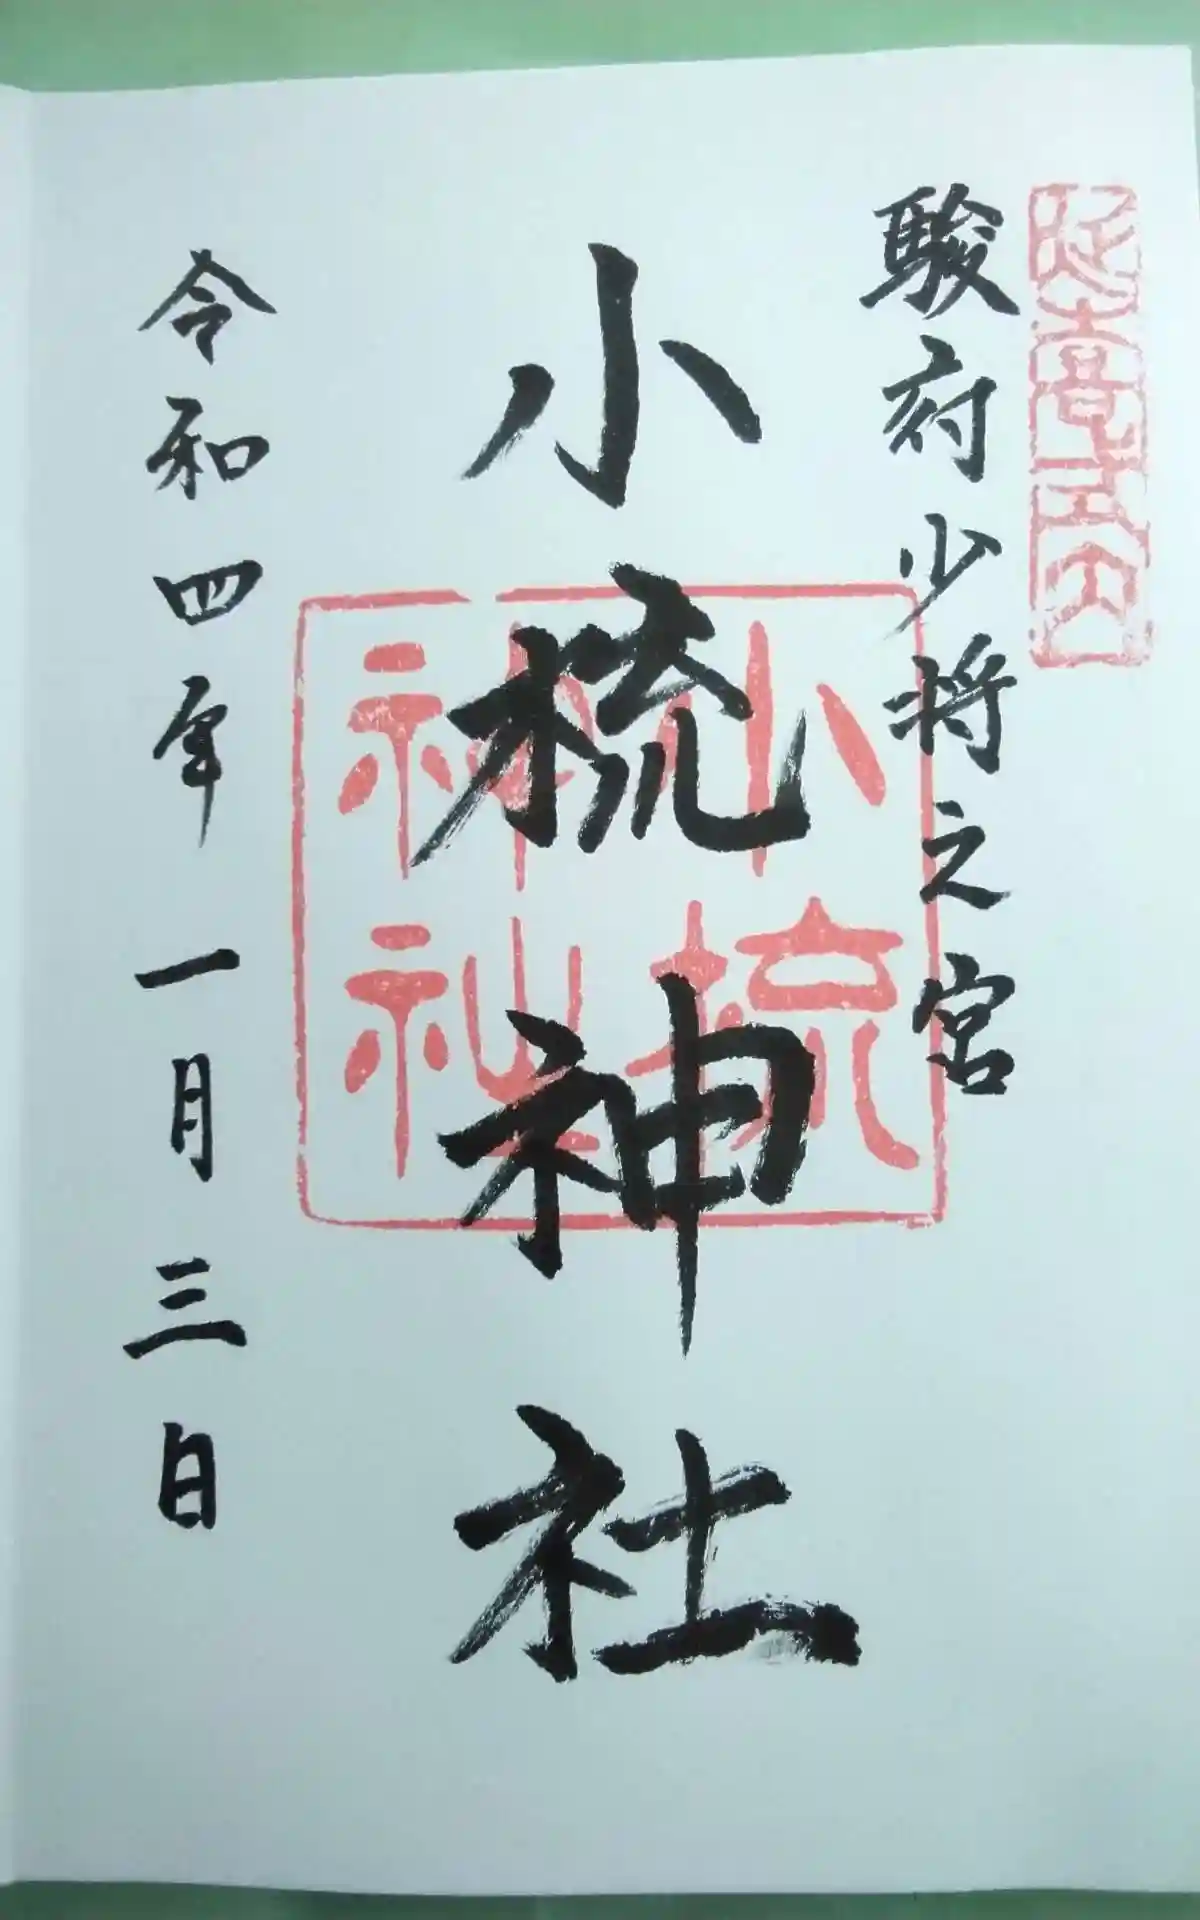 延喜式内
駿府少将之宮
小梳神社
小梳神社
令和四年 一月三日